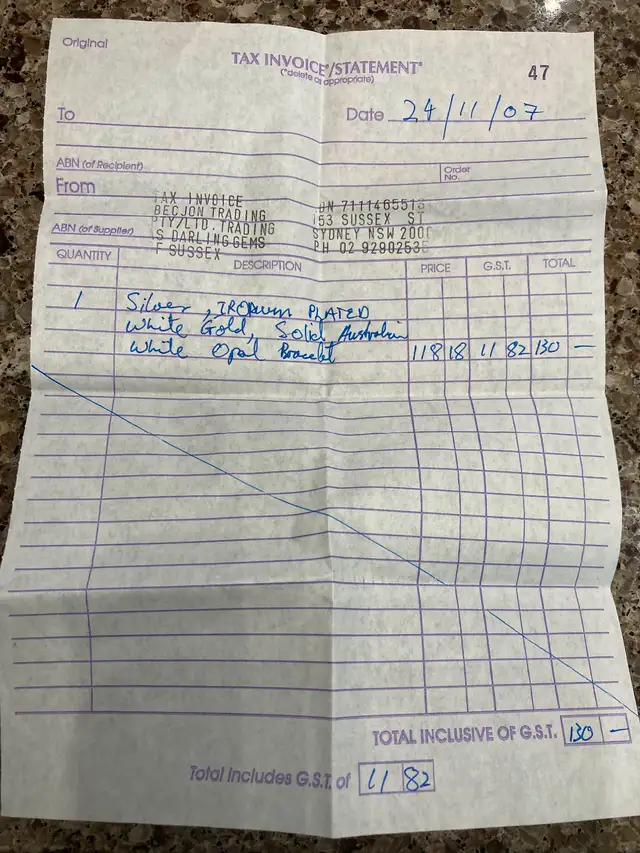 Original
TAX INVOICE*/STATEMENT*
(*delete as appropriate)
47
To
Date 24/11/07
ABN (of Recipient)
Order No.
From
TAX INVOICE
BECJON TRADING
PTY/LTD. TRADING
S DARLING GEMS
F SUSSEX
53 SUSSEX ST
SYDNEY NSW 200
PH 02 9290253
ABN (of Supplier)
QUANTITY DESCRIPTION PRICE G.S.T. TOTAL
1 Silver, PLATED
White Gold, Solid Australian
White Opal Bracelet 118 18 11 82 130 —
TOTAL INCLUSIVE OF G.S.T. 130 —
Total Includes G.S.T. of 11 82